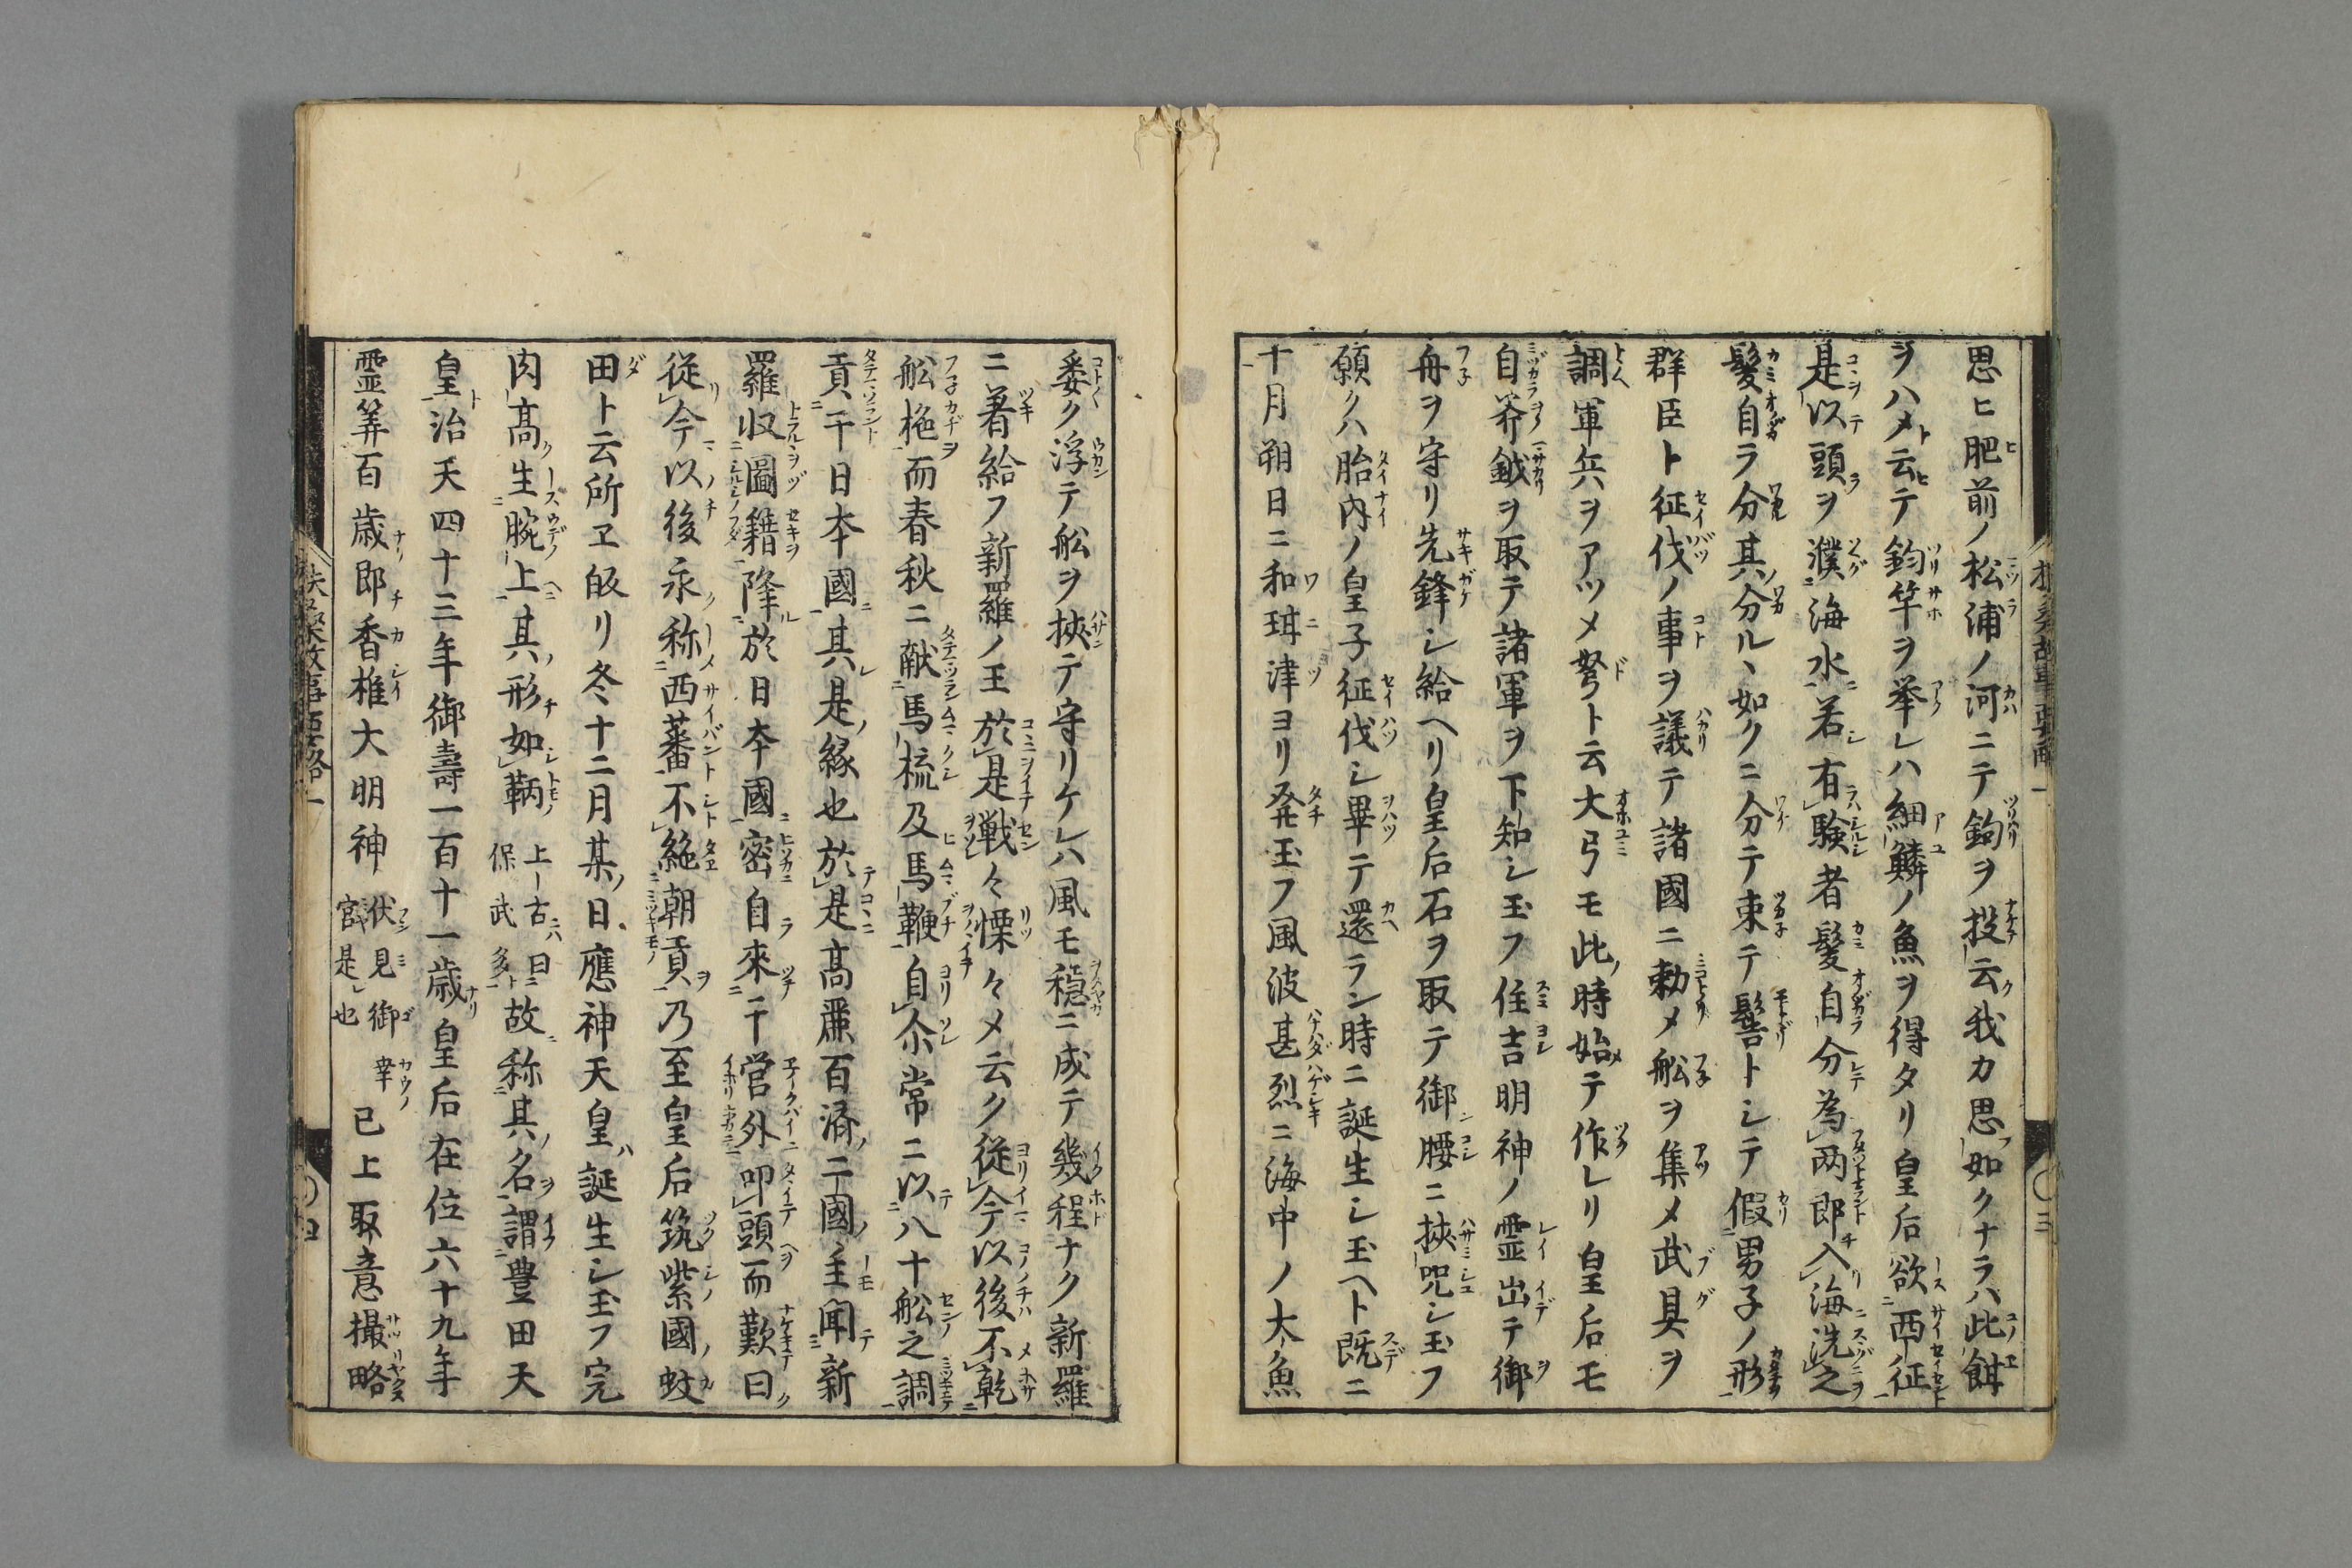 思ヒ肥前ノ松浦ノ河ニテ鉤ヲ投云我カ思如クナラハ此餌
ヲハメト云ヒテ釣竿ヲ挙レハ細鱗ノ魚ヲ得タリ皇后欲西征
是以頭ヲ濮海水若有驗者髮自分為两郎入海洗之
髮自ラ分其分ルヽ如クニ分テ束テ髻トシテ假男子ノ形
群臣ト征伐ノ事ヲ議テ諸國ニ勅メ舩ヲ集メ武具ヲ
調軍兵ヲアツメ弩ト云大弓モ此時始テ作レリ皇后モ
自斧鉞ヲ取テ諸軍ヲ下知シ玉フ住吉明神ノ霊出テ御
舟ヲ守リ先鋒シ給ヘリ皇后石ヲ取テ御腰ニ挾咒シ玉フ
願クハ胎内ノ皇子征伐シ畢テ還ラン時ニ誕生シ玉ヘト既ニ
十月朔日ニ和珥津ヨリ発玉フ風波甚烈ニ海中ノ大魚
委ク浮テ舩ヲ挾テ守リケレハ風モ穏ニ成テ幾程ナク新羅
ニ著給フ新羅ノ王於是戦々慄々メ云ク従今以後不乾
舩柂而春秋ニ献馬梳及馬鞭自尒常ニ以八十舩之調
貢于日本國其是ノ縁也於是高麗百済ノ二國ノ主聞テ新
羅収圖籍降於日本國密自來于営外叩頭而歎曰
従今以後永称西蕃不絶朝貢乃至皇后筑紫國ノ蚊
田ト云所ヱ皈リ冬十二月某ノ日應神天皇ハ誕生シ玉フ完
肉高生腕上其ノ形如鞆 上ー古ニハ曰保武多ト 故称其ノ名謂豊田天
皇ト治天四十三年御壽一百十一歳皇后在位六十九年
霊筭百歳即香椎大明神 伏見御幸宮是也 已上取意撮略